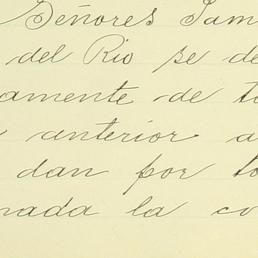 Señores Sam
del Rio se de
amente de to
anterior a
dan por to
nada la co